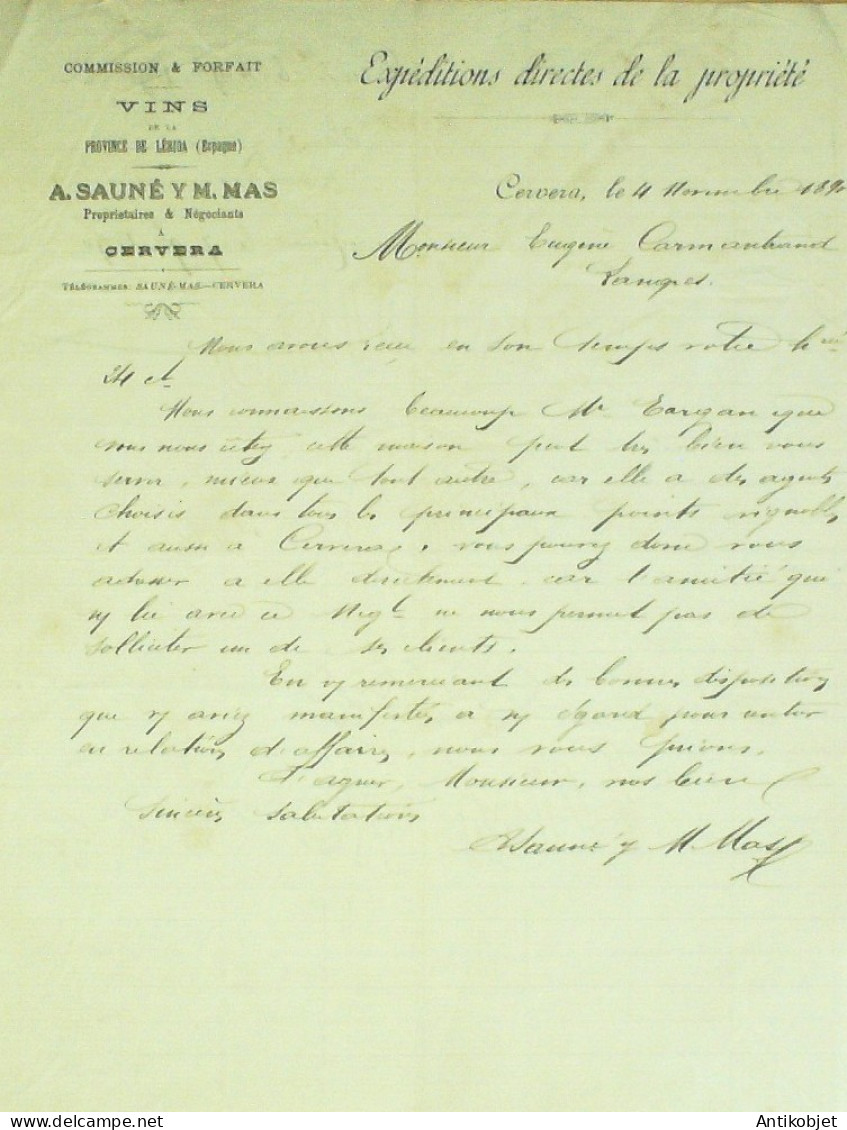 COMMISSION & FORFAIT
VINS
DE LA
PROVINCE DE LÉRIDA (Espagne)
A. SAUNÉ Y M. MAS
Propriétaires & Négociants
À
CERVERA
TÉLÉGRAMMES: SAUNÉ-MAS.—CERVERA
Expéditions directes de la propriété
Cervera, le 4 Novembre 189
Monsieur Eugène Carmantrand
Langres.
Nous avons reçu en son temps votre h
24 ct
Nous connaissons beaucoup Mr que
vous nous citez cette maison peut très bien vous
servir, mieux que tout autre, car elle a des agents
choisis dans tous les principaux points vignobles
et aussi à Cervera, vous pouvez donc vous
adresser a elle directement, car l'amitié qui
n/ lie avec ce Negt ne nous permet pas de
solliciter un de ses clients.
En v/ remerciant des bonnes dispositions
que v/ aviez manifestées à n/ égard pour entrer
en relations d'affaires, nous vous prions,
d'agréer, Monsieur, nos bien
sincères salutations
A Sauné y M. Mas
Antikobjet www.delcampe.net